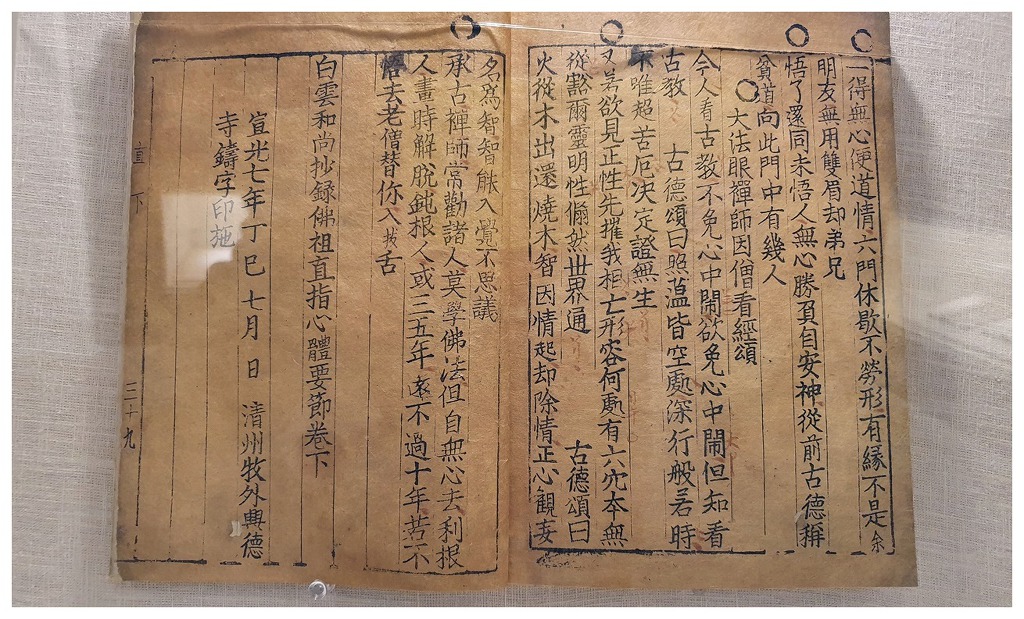 一得無心便道情六門休歇不勞形有緣不是余
明友無用雙眉却弟兄
悟了還同未悟人無心勝負自安神從前古德稱
貧道向此門中有幾人
大法眼禪師因僧看經頌
今人看古教不免心中鬧欲免心中鬧但知看
古教 古德頌曰照蘊皆空處深行般若時
不唯超苦厄決定證無生
又若欲見正性先摧我相亡形容何處有六穴本無
從豁爾靈明性翛然世界通 古德頌曰
火從木出還燒木智因情起却除情正心觀妄
名爲智智能入覺不思議
承古禪師常勸諸人莫學佛法但自無心去利根
人晝時解脫鈍根人或三五年遠不過十年若不
悟去老僧替你入拔舌
白雲和尚抄錄佛祖直指心體要節卷下
宣光七年丁巳七月 日 清州牧外興德
寺鑄字印施
直 下
三十九